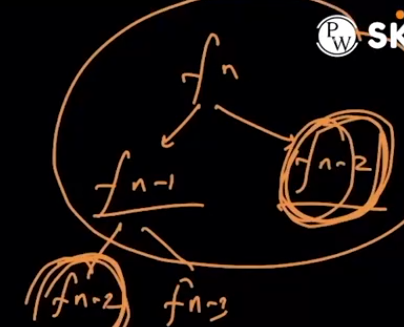 PW SK
fn
fn-1 fn-2
fn-2 fn-3